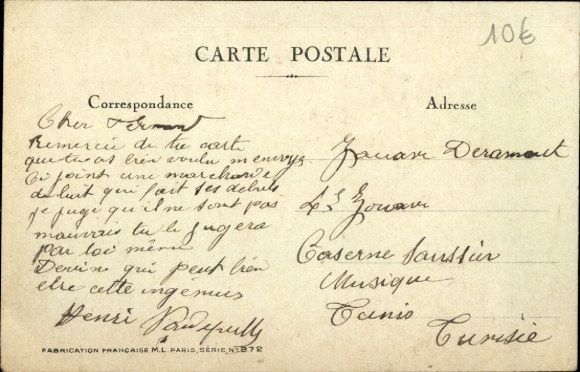 10€
CARTE POSTALE
Correspondance
Adresse
Cher Fernand
Remercie de ta carte
que tu as bien voulu m'envoye
Ci joint une marchande
de lait qui fait ses debuts
je juge qu'il ne sont pas
mauvais tu le jugera
par toi même
Devine qui peut bien
etre cette ingénus
Henri
Zouave Deramout
4e Zouave
Caserne Saussier
Musique
Tunis
Tunisie
FABRICATION FRANÇAISE M.L. PARIS, SÉRIE, No 872